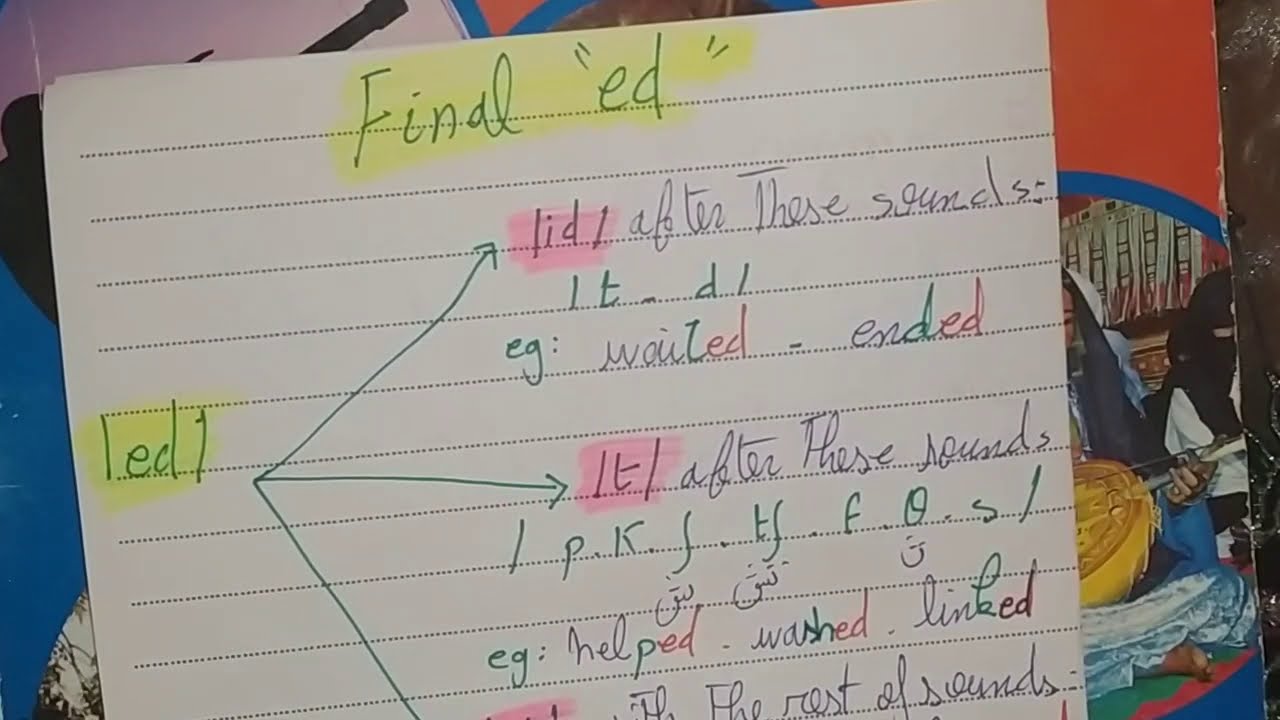 Final "ed"
/id/ after these sounds:
/ t - d /
eg: waited - ended
/ed/
/t/ after these sounds
/ p. k. ʃ. tʃ. f. θ. s /
ش تش ث
eg: helped - washed. linked
with the rest of sounds: